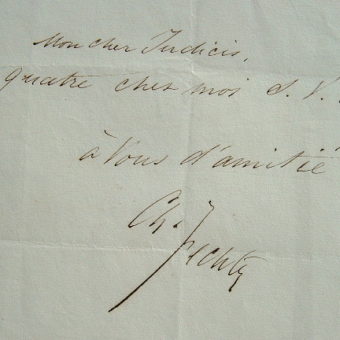 Mon cher Judicis,
quatre chez moi S. V.
à Vous d'amitié
Ch. Fechter